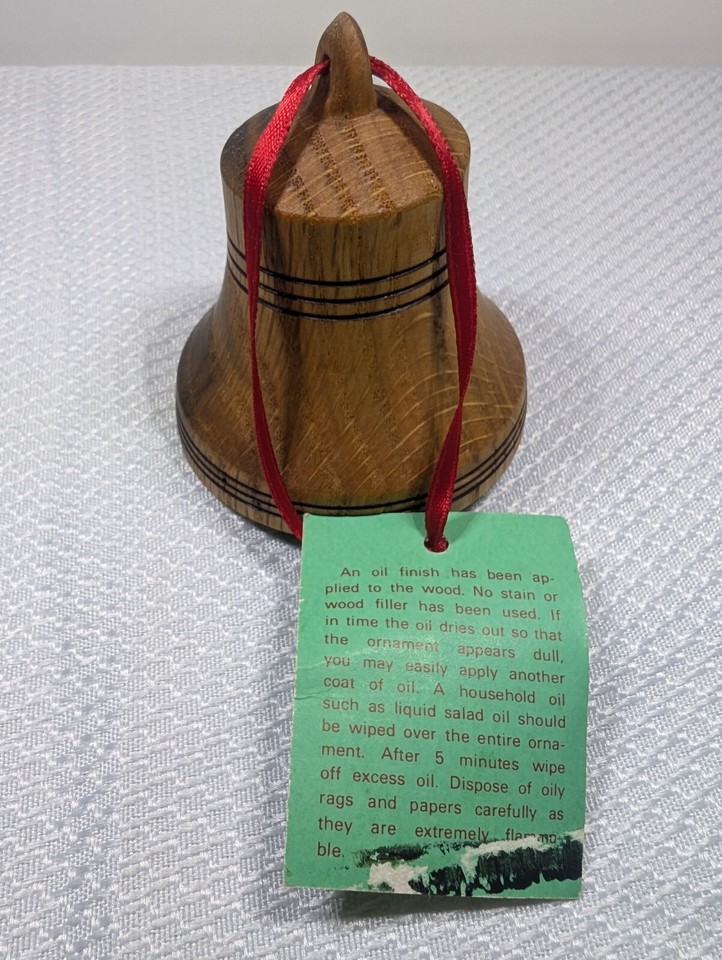 An oil finish has been ap-
plied to the wood. No stain or
wood filler has been used. If
in time the oil dries out so that
the ornament appears dull,
you may easily apply another
coat of oil. A household oil
such as liquid salad oil should
be wiped over the entire orna-
ment. After 5 minutes wipe
off excess oil. Dispose of oily
rags and papers carefully as
they are extremely flamma-
ble.